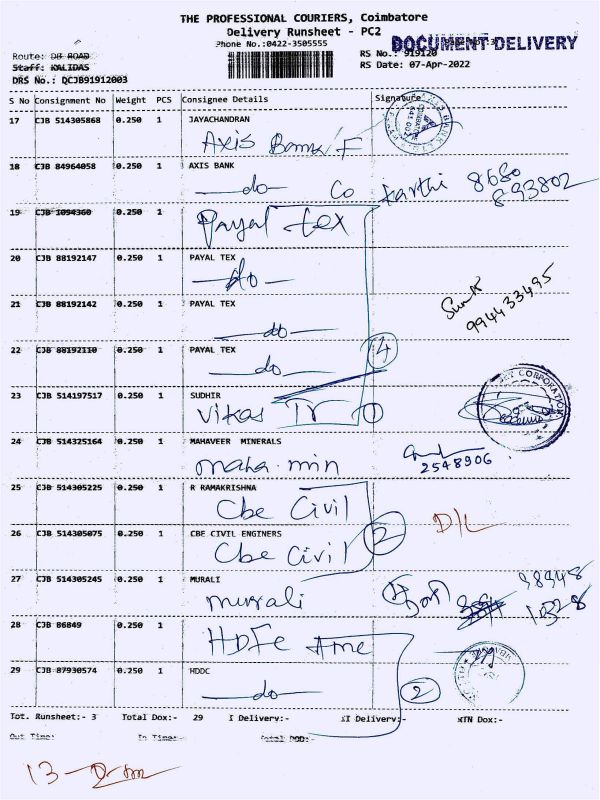 THE PROFESSIONAL COURIERS, Coimbatore
Delivery Runsheet - PC2
Phone No.:0422-3505555
DOCUMENT DELIVERY
Route: DB ROAD
RS No.: 919120
Staff: KALIDAS
RS Date: 07-Apr-2022
DRS No.: QCJB91912003
S No Consignment No Weight PCS Consignee Details Signature
17 CJB 514305868 0.250 1 JAYACHANDRAN
Axis Bank F
18 CJB 84964058 0.250 1 AXIS BANK
do Co Karthi 8680
893802
19 CJB 1094360 0.250 1
Payal tex
20 CJB 88192147 0.250 1 PAYAL TEX
do
21 CJB 88192142 0.250 1 PAYAL TEX
do
994433495
22 CJB 88192110 0.250 1 PAYAL TEX
do 4
23 CJB 514197517 0.250 1 SUDHIR
vikas Tr 1
CORPORATION
24 CJB 514325164 0.250 1 MAHAVEER MINERALS
maha. min
2548906
25 CJB 514305225 0.250 1 R RAMAKRISHNA
Cbe Civil
D/L
26 CJB 514305075 0.250 1 CBE CIVIL ENGINERS
Cbe Civil 2
27 CJB 514305245 0.250 1 MURALI
murali
98948
10328
28 CJB 86849 0.250 1
HDFC Ame
29 CJB 87930574 0.250 1 HDDC
do 2
Tot. Runsheet:- 3 Total Dox:- 29 I Delivery:- II Delivery:- NTN Dox:-
Out Time: In Time:- Total POD:-
13